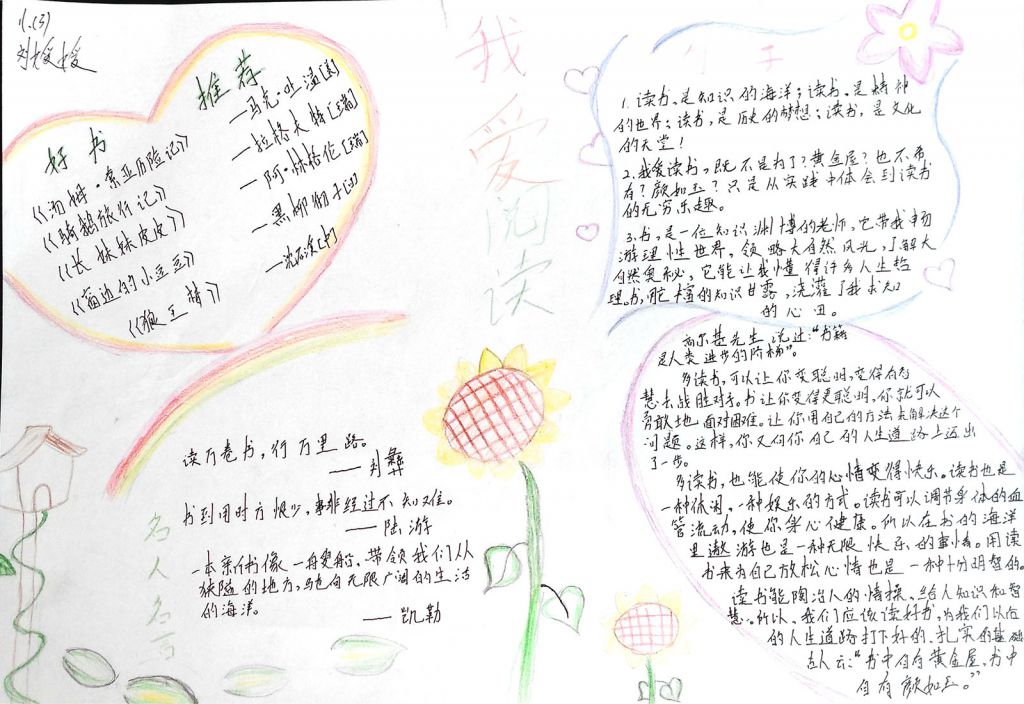 八.(3)
刘媛媛
好书
推荐
《汤姆·索亚历险记》
—马克·吐温[美]
《骑鹅旅行记》
—拉格夫特[瑞]
《长袜妹皮皮》
—阿·林格伦[瑞]
《窗边的小豆豆》
—黑柳彻子[日]
《狼王梦》
—沈石溪[中]
我爱阅读
1.读书、是知识的海洋；读书、是精神
的世界；读书，是历史的梦想；读书，是文化
的天堂！
2.我爱读书，既不是为了？黄金屋？也不希
有？颜如玉？只是从实践中体会到读书
的无穷乐趣。
3.书，是一位知识渊博的老师，它带我畅
游理性世界，领略大自然风光，了解大
自然奥秘，它能让我懂得许多人生哲
理。书，用它丰富的知识甘露，浇灌了我求知
的心田。
高尔基先生说过：“书籍
是人类进步的阶梯”。
多读书，可以让你变聪明，变得有智
慧去战胜对手。书让你变得更聪明，你就可以
勇敢地面对困难。让你用自己的方法去解决这个
问题。这样，你又向你自己的人生道路上迈出
了一步。
多读书，也能使你的心情变得快乐。读书也是
一种休闲，一种娱乐的方式。读书可以调节身体的血
管流动，使你身心健康。所以在书的海洋
里遨游也是一种无限快乐的事情。用读
书来为自己放松心情也是一种十分明智的。
读书能陶冶人的情操、给人知识和智
慧。所以、我们应该读好书，为我们以后
的人生道路打下好的、扎实的基础
古人云：“书中自有黄金屋，书中
自有颜如玉。”
名人名言
读万卷书，行万里路。
——刘彝
书到用时方恨少，事非经过不知难。
——陆游
一本新书像一艘船，带领我们从
狭隘的地方，驶向无限广阔的生活
的海洋。
——凯勒